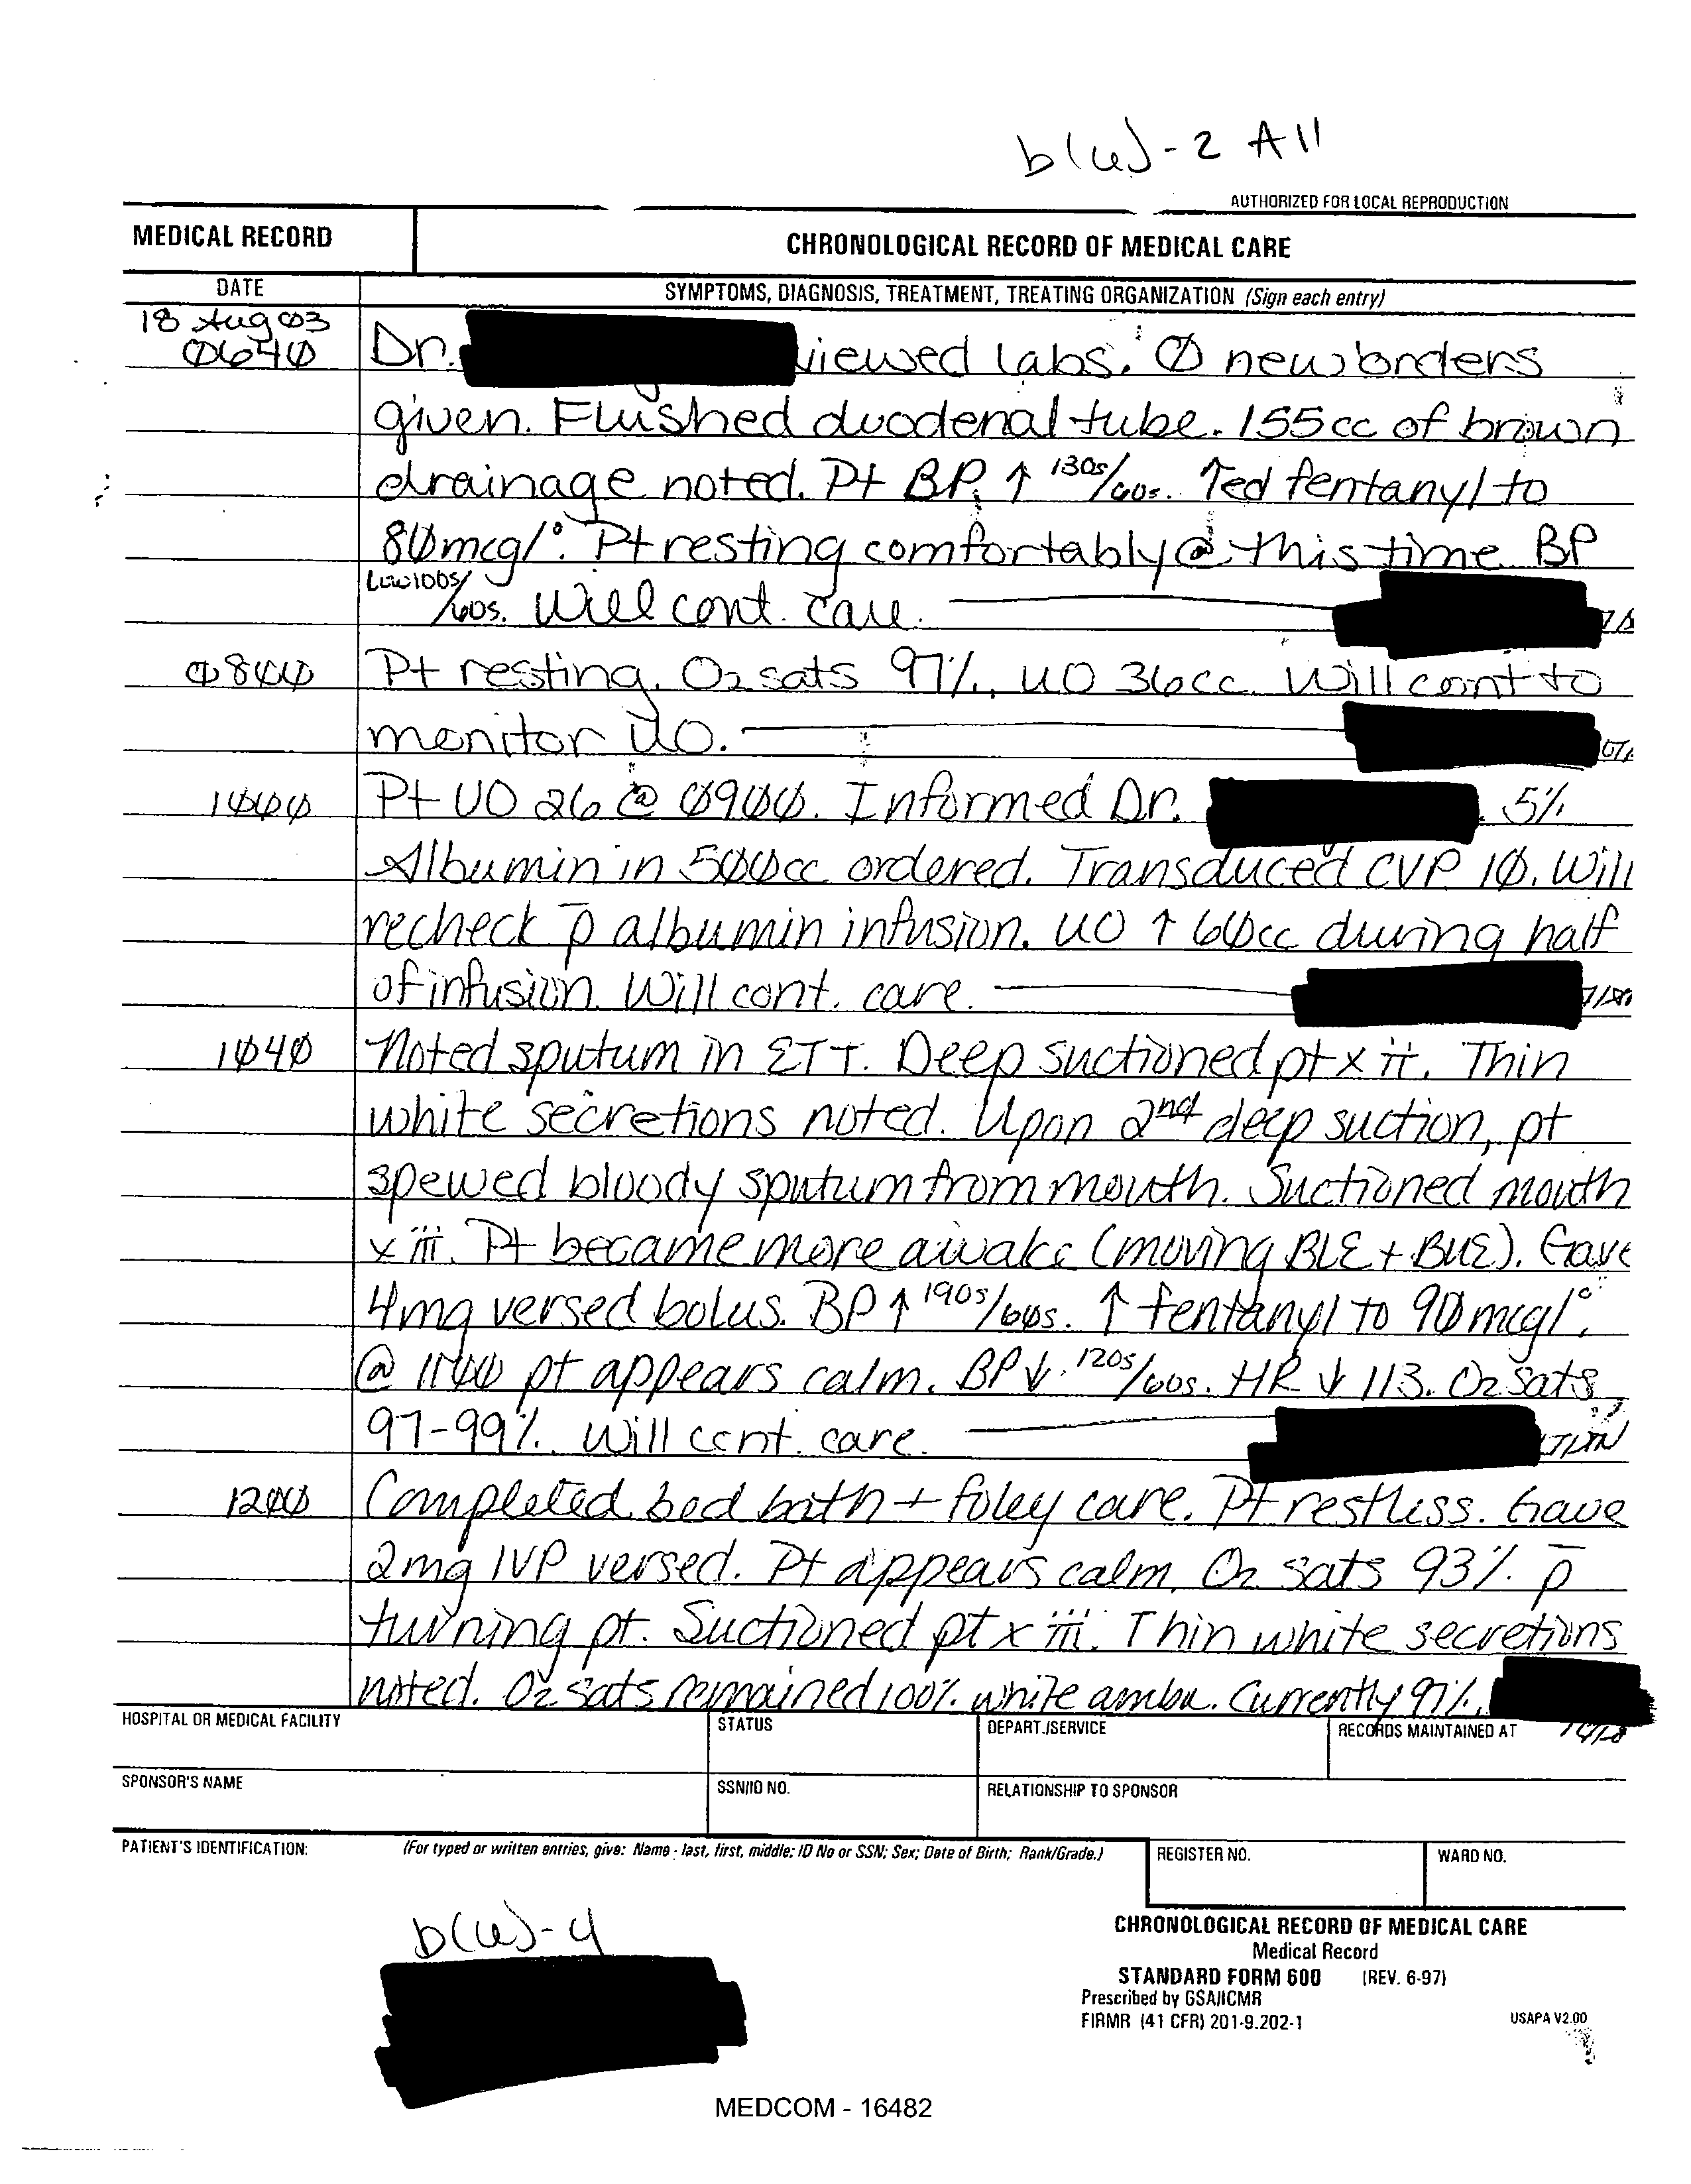 b(6)-2 All
AUTHORIZED FOR LOCAL REPRODUCTION
MEDICAL RECORD
CHRONOLOGICAL RECORD OF MEDICAL CARE
DATE
SYMPTOMS, DIAGNOSIS, TREATMENT, TREATING ORGANIZATION (Sign each entry)
18 Aug 03
0640 Dr. viewed labs. Ø new orders
given. Flushed duodenal tube. 155cc of brown
drainage noted. Pt BP ↑ 130s/60s. ↑ed fentanyl to
80mcg/°. Pt resting comfortably @ this time BP
Low 100s/60s. Will cont. care.
0800 Pt resting. O2 sats 97%. UO 36cc. Will cont to
monitor UO.
1000 Pt UO 26 @ 0900. Informed Dr. 5%
Albumin in 500cc ordered. Transduced CVP 10. Will
recheck p̄ albumin infusion. UO ↑ 60cc during half
of infusion. Will cont. care.
1040 Noted sputum in ETT. Deep suctioned pt x ii. Thin
white secretions noted. Upon 2nd deep suction, pt
spewed bloody sputum from mouth. Suctioned mouth
x iii. Pt became more awake (moving BLE + BUE). Gave
4mg versed bolus. BP ↑ 190s/60s. ↑ fentanyl to 90mcg/°.
@ 1100 pt appears calm. BP ↓ 120s/60s. HR ↓ 113. O2 sats
97-99%. Will cont. care.
1200 Completed bed bath + foley care. Pt restless. Gave
2mg IVP versed. Pt appears calm. O2 sats 93% p̄
turning pt. Suctioned pt x iii. Thin white secretions
noted. O2 sats remained 100% while ambu. Currently 97%.
HOSPITAL OR MEDICAL FACILITY
STATUS
DEPART./SERVICE
RECORDS MAINTAINED AT
SPONSOR'S NAME
SSN/ID NO.
RELATIONSHIP TO SPONSOR
PATIENT'S IDENTIFICATION:
(For typed or written entries, give: Name - last, first, middle; ID No or SSN; Sex; Date of Birth; Rank/Grade.)
REGISTER NO.
WARD NO.
b(6)-4
CHRONOLOGICAL RECORD OF MEDICAL CARE
Medical Record
STANDARD FORM 600 (REV. 6-97)
Prescribed by GSA/ICMR
FIRMR (41 CFR) 201-9.202-1
USAPA V2.00
MEDCOM - 16482